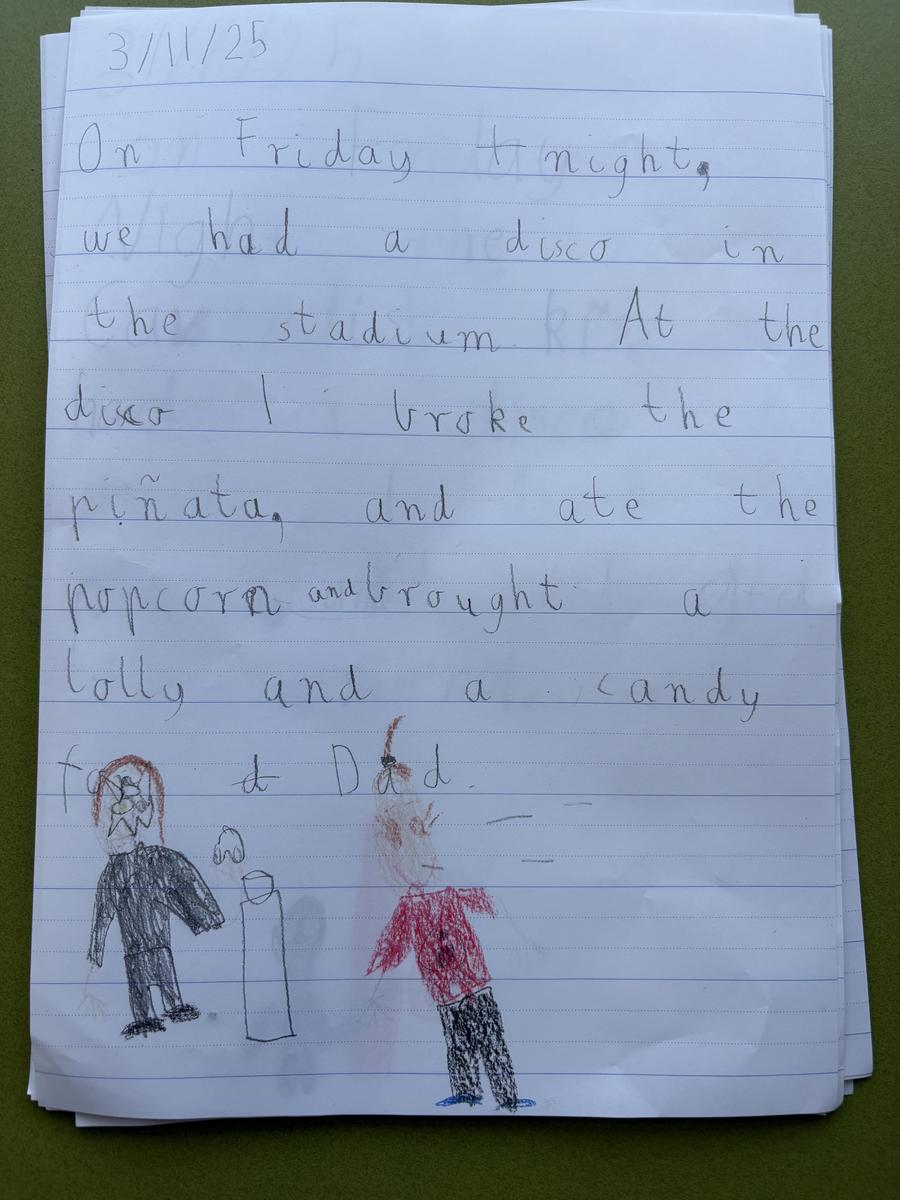 3/11/25
On Friday night,
we had a disco in
the stadium. At the
disco I broke the
piñata, and ate the
popcorn and brought a
lolly and a candy
Dad.